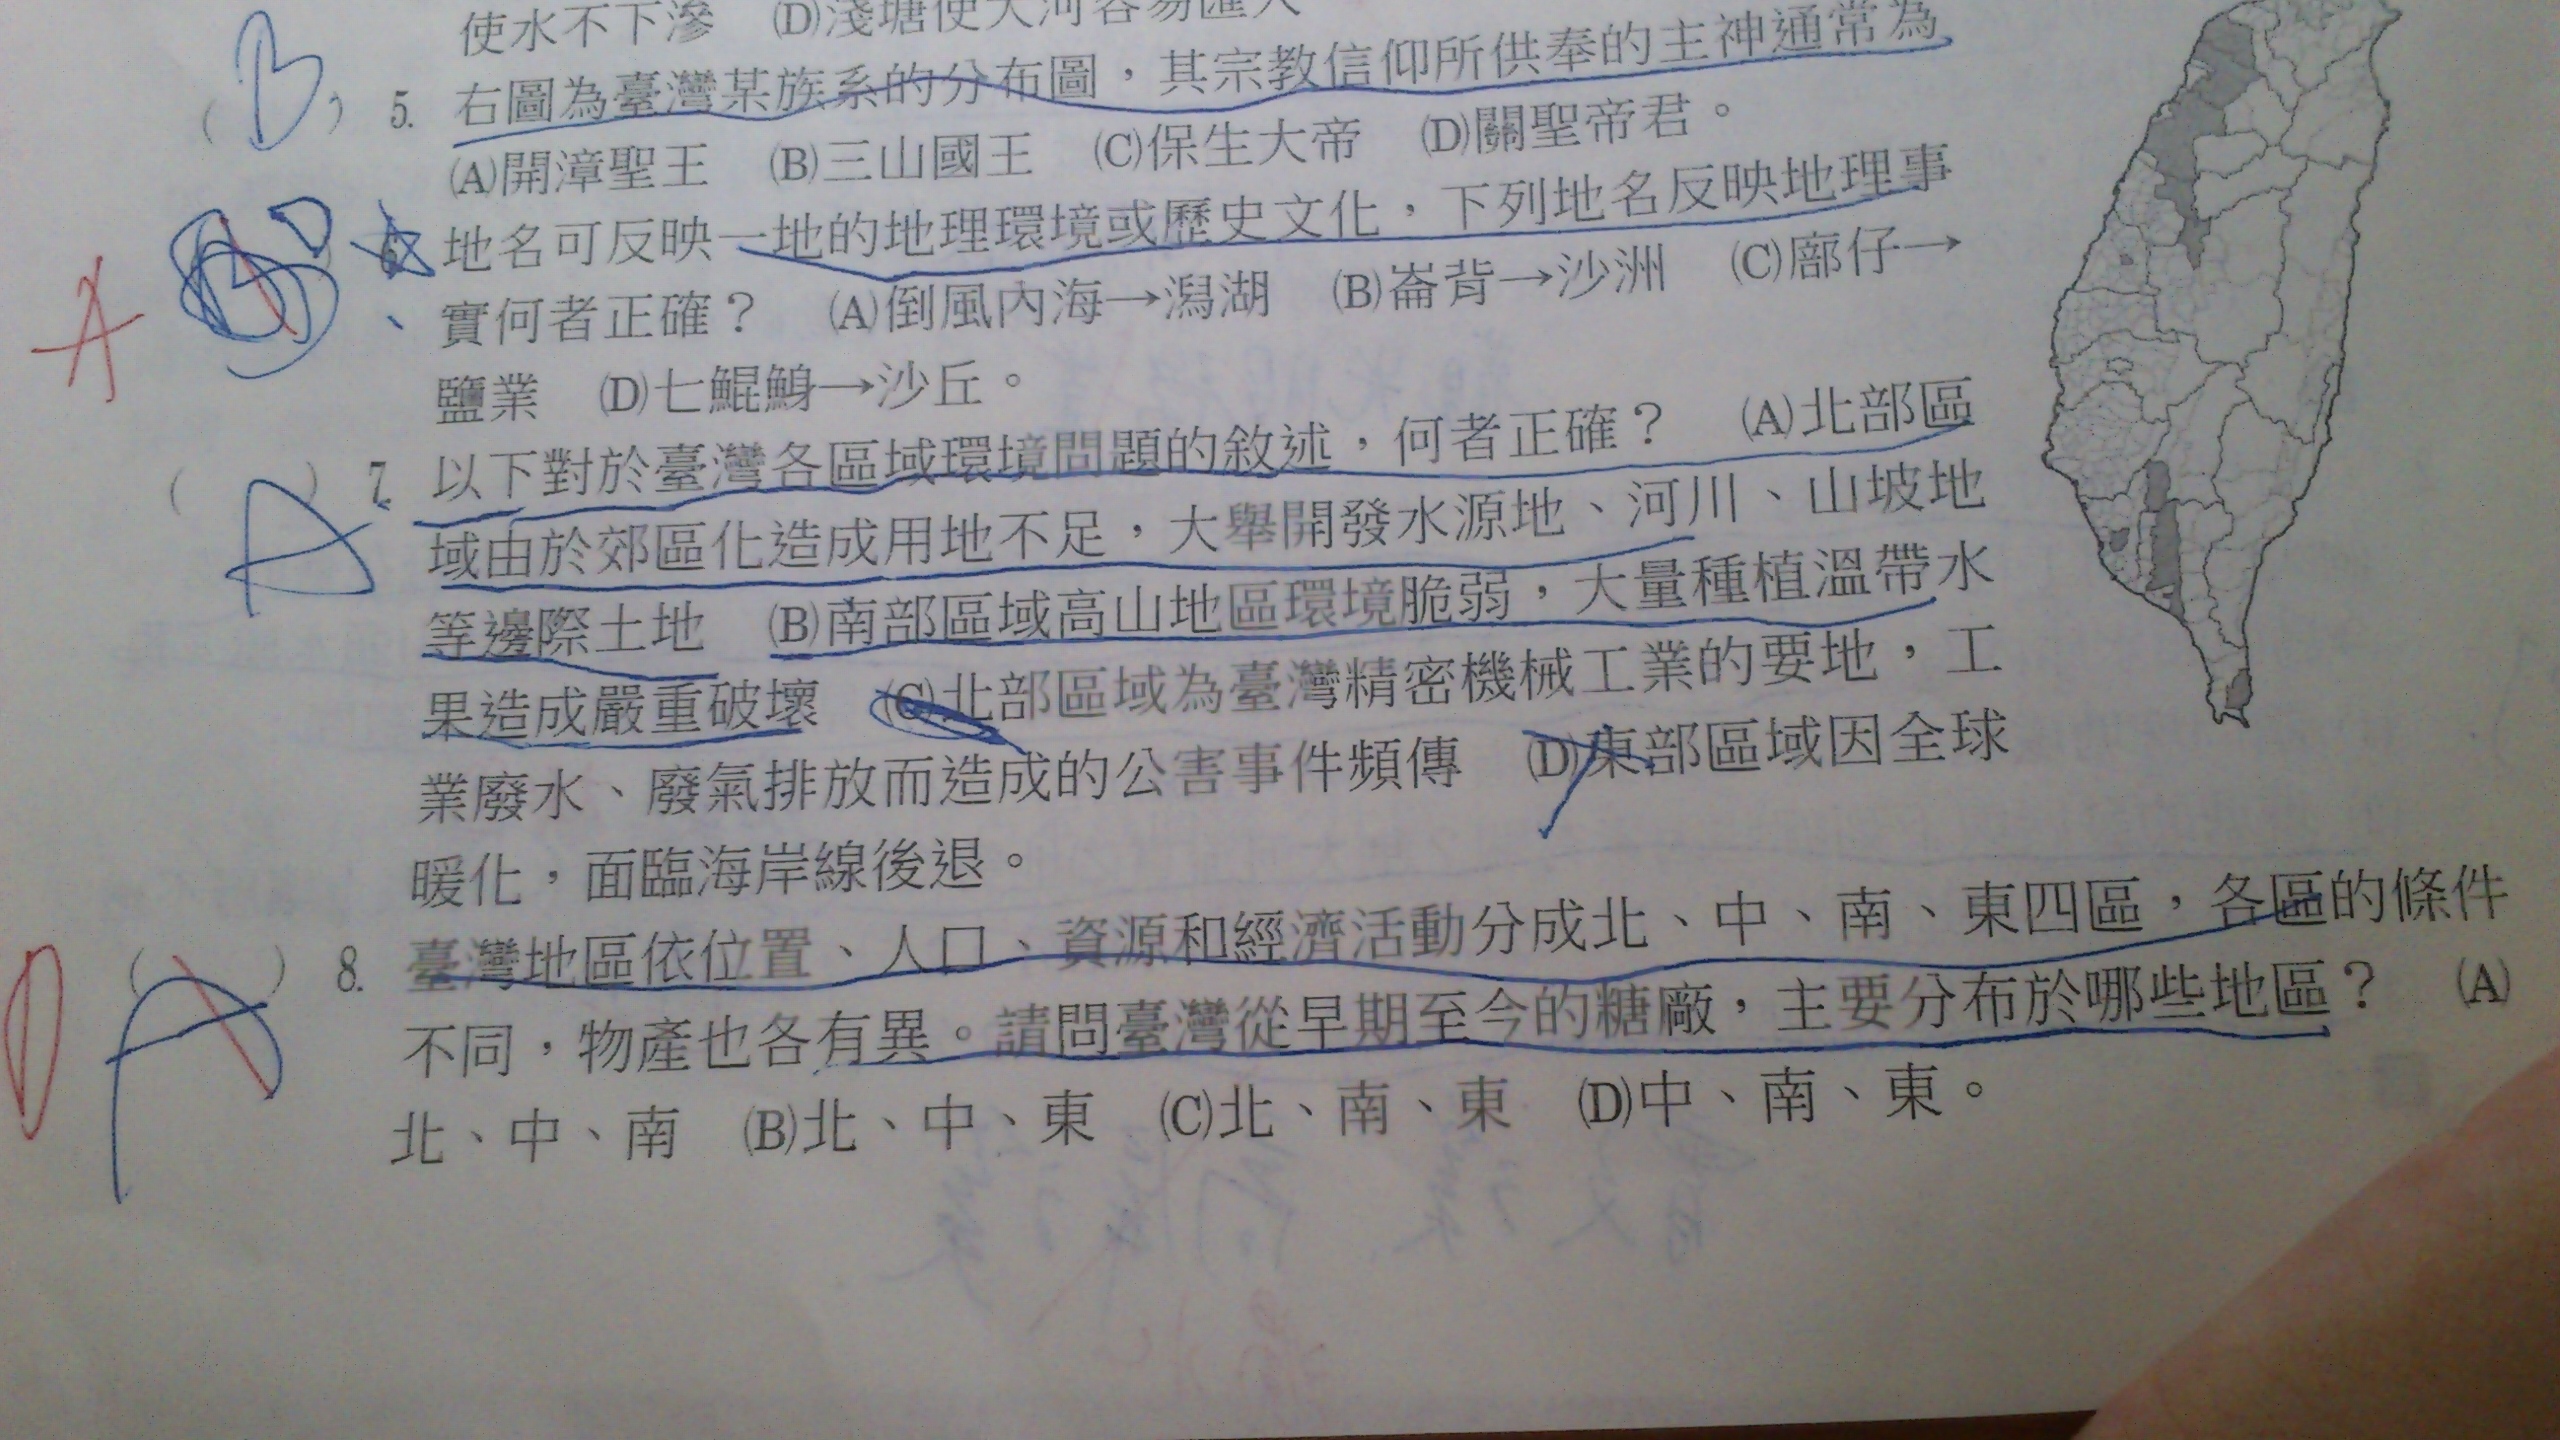 使水不下滲 (D)淺塘使大河容易匯入
(B) 5. 右圖為臺灣某族系的分布圖，其宗教信仰所供奉的主神通常為
(A)開漳聖王 (B)三山國王 (C)保生大帝 (D)關聖帝君。
A D 6. 地名可反映一地的地理環境或歷史文化，下列地名反映地理事
實何者正確？ (A)倒風內海→潟湖 (B)崙背→沙洲 (C)廍仔→
鹽業 (D)七鯤鯓→沙丘。
(A) 7. 以下對於臺灣各區域環境問題的敘述，何者正確？ (A)北部區
域由於郊區化造成用地不足，大舉開發水源地、河川、山坡地
等邊際土地 (B)南部區域高山地區環境脆弱，大量種植溫帶水
果造成嚴重破壞 (C)北部區域為臺灣精密機械工業的要地，工
業廢水、廢氣排放而造成的公害事件頻傳 (D)東部區域因全球
暖化，面臨海岸線後退。
D (A) 8. 臺灣地區依位置、人口、資源和經濟活動分成北、中、南、東四區，各區的條件
不同，物產也各有異。請問臺灣從早期至今的糖廠，主要分布於哪些地區？ (A)
北、中、南 (B)北、中、東 (C)北、南、東 (D)中、南、東。